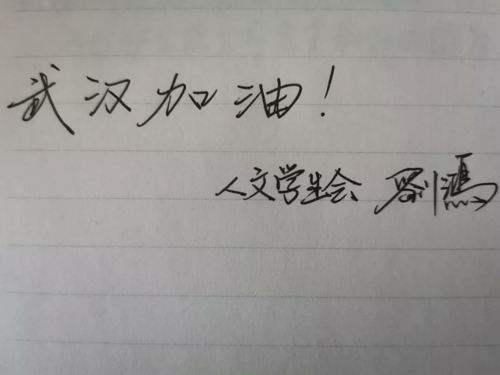 武汉加油！
人文学生会